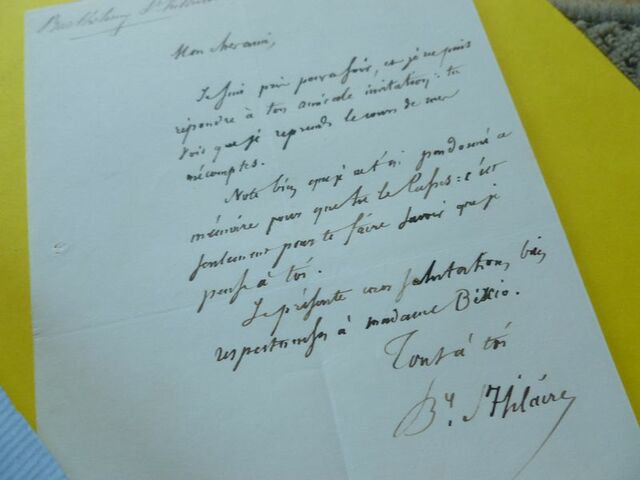 Barthélemy St Hilaire
Mon cher ami,
Je suis pris pour ce soir, et je ne puis
répondre à ton amicale invitation : tu
vois que je reprends le cours de mes
mécomptes.
Note bien que je ai donné ce
mémoire pour que tu le lises : c'est
seulement pour te faire savoir que je
pense à toi.
Je présente mes salutations bien
respectueuses à madame Bixio.
Tout à toi
By. St Hilaire